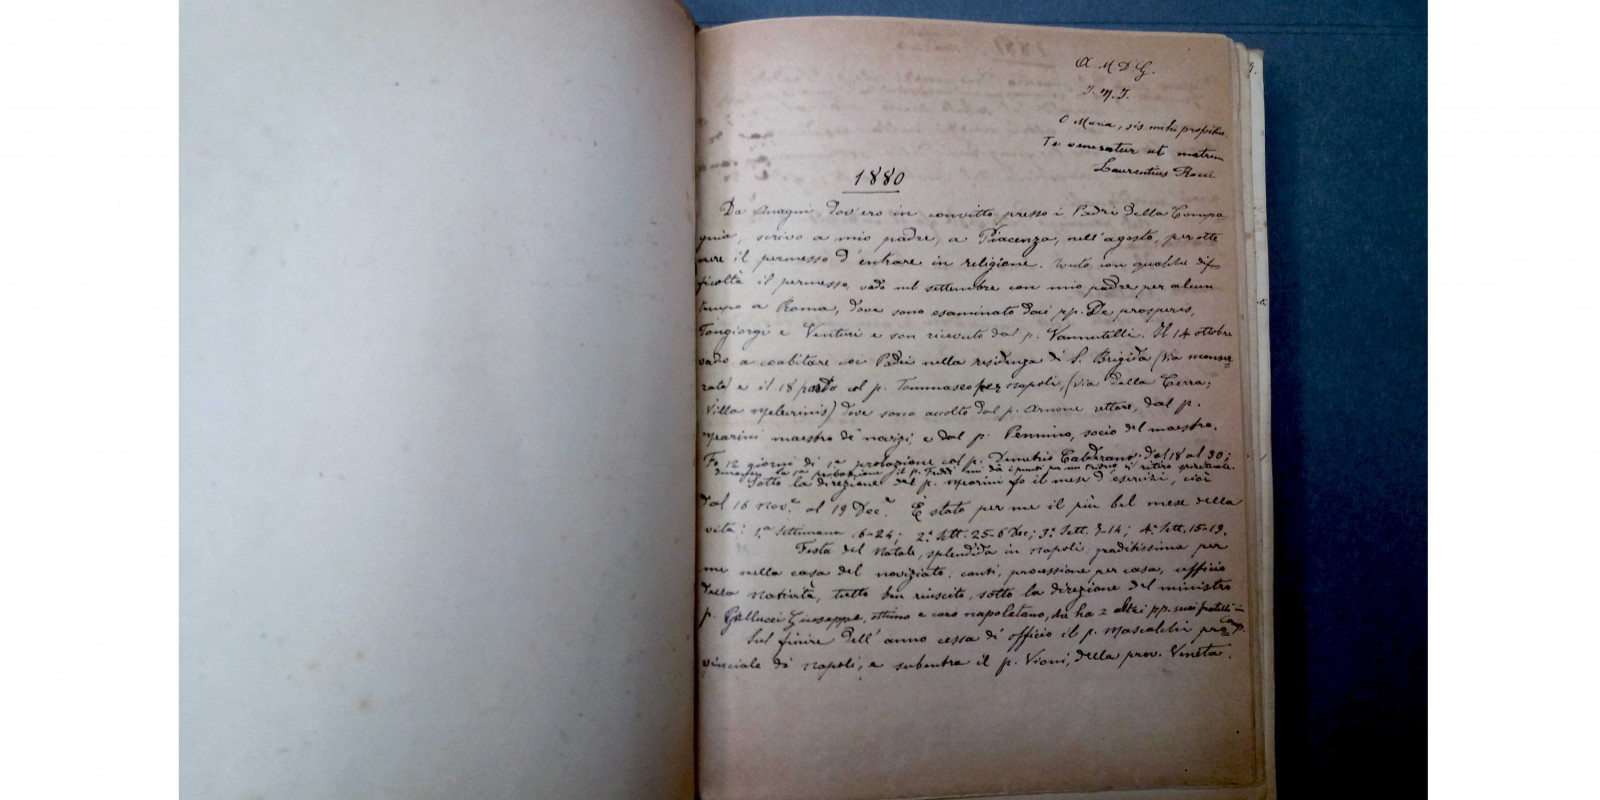 A. M. D. G.
J. M. J.
O Maria, sis mihi propitia.
Te veneratur ut matrem
Laurentius Rocci
1880
Da Anagni, dov'ero in convitto presso i Padri della Compa
gnia, scrivo a mio padre, a Piacenza, nell'agosto, per otte
nere il permesso d'entrare in religione. Avuto con qualche dif
ficoltà il permesso, vado nel settembre con mio padre per alcun
tempo a Roma, dove sono esaminato dai pp. De prosperis,
Tongiorgi e Venturi e son ricevuto dal p. Vannutelli. Il 14 ottobre
vado a coabitare coi Padri nella residenza di S. Brigida (via monser
rato) e il 18 parto col p. Tommaseo per Napoli, (via della Cerra;
Villa Melecrinis) dove sono accolto dal p. Arnone rettore, dal p.
Marini maestro de' novizi e dal p. Pennino, socio del maestro.
Fo 12 giorni di 1ª probazione col p. Demetrio Calderano dal 18 al 30;
durante la 1ª probazione il p. mi dà i punti per un triduo di ritiro spirituale.
Sotto la direzione del p. Marini fo il mese d'esercizi, cioè
dal 16 Nov.e al 19 Dec.e È stato per me il più bel mese della
vita: 1.ª Settimana 16-24; 2.ª Sett. 25-6 Dec; 3.ª Sett. 7-14; 4.ª Sett. 15-19.
Festa del Natale, splendida in Napoli: graditissima per
me nella casa del noviziato: canti, processione per casa, ufficio
della Natività, tutto ben riuscito, sotto la direzione del ministro
p. Gallucci Giuseppe, ottimo e caro napoletano, che ha 2 altri pp. suoi fratelli in Comp.
Sul finire dell'anno cessa di officio il p. Mascalchi pro
vinciale di Napoli, e subentra il p. Vioni, della prov. Veneta.